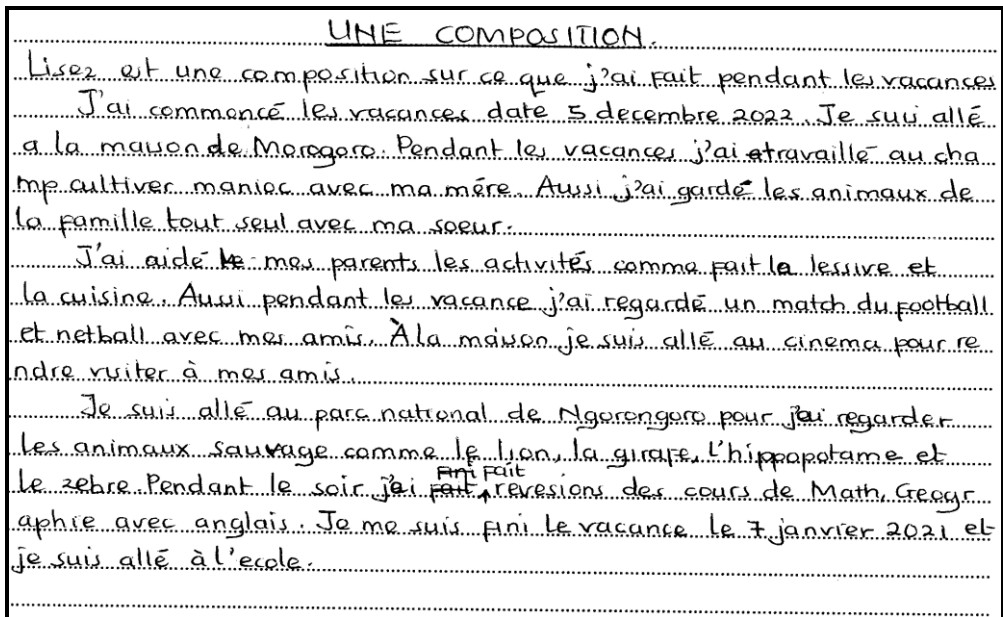 UNE COMPOSITION.
Lisez est une composition sur ce que j'ai fait pendant les vacances
J'ai commencé les vacances date 5 decembre 2022. Je suis allé
a la maison de Morogoro. Pendant les vacances j'ai travaillé au cha
mp cultiver manioc avec ma mére. Aussi j'ai gardé les animaux de
la famille tout seul avec ma soeur.
J'ai aidé mes parents les activités comme fait la lessive et
la cuisine. Aussi pendant les vacance j'ai regardé un match du football
et netball avec mes amis. À la maison je suis allé au cinema pour re
ndre visiter à mes amis.
Je suis allé au parc national de Ngorongoro pour j'ai regarder
les animaux sauvage comme le lion, la girafe, l'hippopotame et
le zebre. Pendant le soir j'ai fini fait revesions des cours de Math, Geogr
aphie avec anglais. Je me suis fini le vacance le 7 janvier 2021 et
je suis allé à l'ecole.